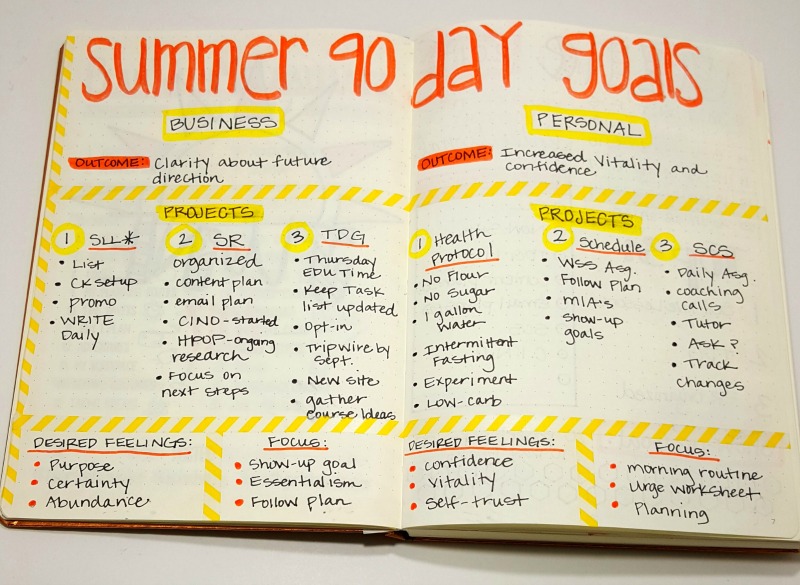 summer 90 day goals
BUSINESS
OUTCOME: Clarity about future
direction
PROJECTS
1 SLL*
• List
• CK setup
• promo
• WRITE
Daily
2 SR
organized
• content plan
• email plan
• CINO-started
• HPOP-ongoing
research
• Focus on
next steps
3 TDG
• Thursday
EDU Time
• Keep Task
list updated
• Opt-in
• Tripwire by
Sept.
• New site
• gather
course Ideas
DESIRED FEELINGS:
• Purpose
• certainty
• Abundance
FOCUS:
• show-up goal
• Essentialism
• Follow plan
PERSONAL
OUTCOME: Increased Vitality and
confidence
PROJECTS
1 Health
Protocol
• No Flour
• No Sugar
• 1 gallon
water
• Intermittent
Fasting
• Experiment
• Low-carb
2 Schedule
• WSS Asg.
• Follow Plan
• MIA's
• show-up
goals
3 SCS
• Daily Asg.
• coaching
calls
• Tutor
• Ask?
• Track
changes
DESIRED FEELINGS:
• confidence
• vitality
• self-trust
FOCUS:
• morning routine
• Urge worksheet
• Planning